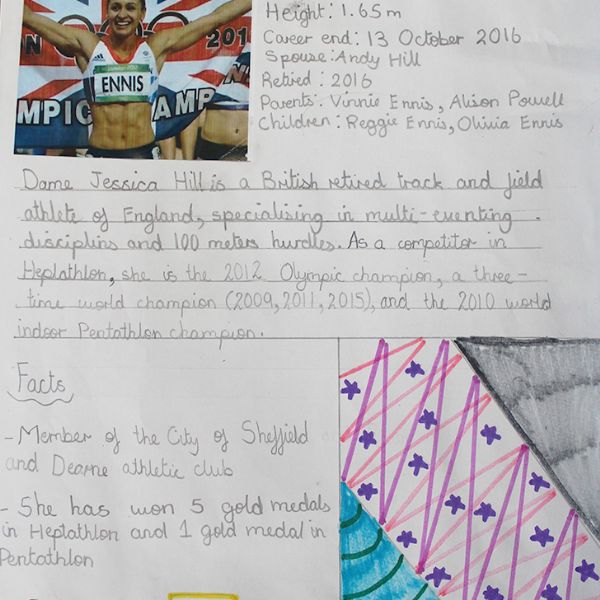 Height: 1.65m
Career end: 13 October 2016
Spouse: Andy Hill
Retired: 2016
Parents: Vinnie Ennis, Alison Powell
Children: Reggie Ennis, Olivia Ennis
ON
201
ENNIS
MPIC
AMP
Dame Jessica Hill is a British retired track and field
athlete of England, specialising in multi-eventing
disciplins and 100 meters hurdles. As a competitor in
Heptathlon, she is the 2012 Olympic champion, a three-
time world champion (2009, 2011, 2015), and the 2010 world
indoor Pentathlon champion.
Facts
- Member of the City of Sheffield
and Dearne athletic club
- She has won 5 gold medals
in Heptathlon and 1 gold medal in
Pentathlon